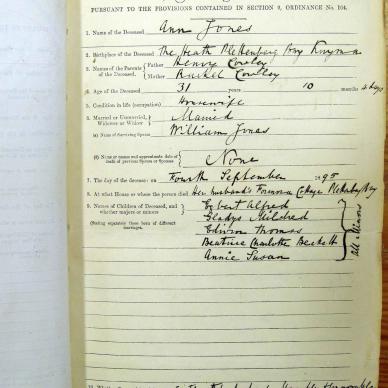 PURSUANT TO THE PROVISIONS CONTAINED IN SECTION 9, ORDINANCE No. 104.
1. Name of the Deceased Ann Jones
2. Birthplace of the Deceased The Heath Plettenberg Bay Knysna
3. Names of the Parents of the Deceased. Father Henry Cowley
Mother Rachel Cowley
4. Age of the Deceased 31 years 10 months 4 days
5. Condition in life (occupation) Housewife
6. Married or Unmarried, Widower or Widow Married
(a) Name of Surviving Spouse William Jones
(b) Name or names and approximate date of death of previous Spouse or Spouses None
7. The day of the decease: on Fourth September 1895
8. At what House or where the person died Her husband's Formosa Cottage Plettenberg Bay
9. Names of Children of Deceased, and whether majors or minors Egbert Alfred
Gladys Mildred
(Stating separately those born of different marriages.) Edwin Thomas
Beatrice Charlotte Beckett
Annie Susan
All Minors